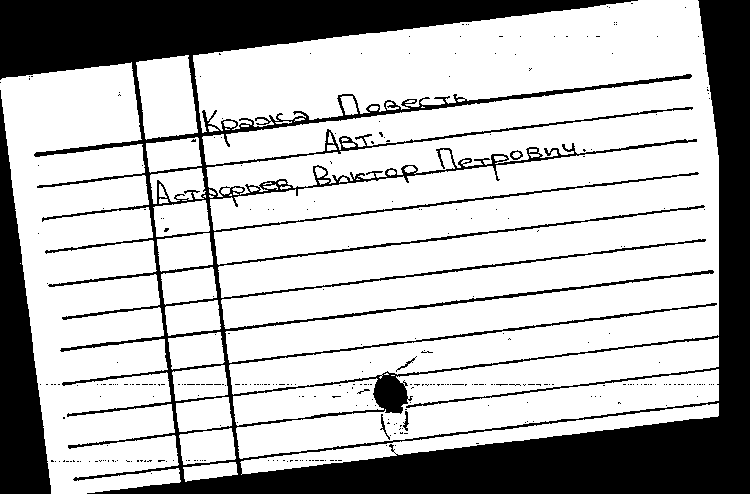 Кража Повесть
Авт.:
Астафьев, Виктор Петрович.